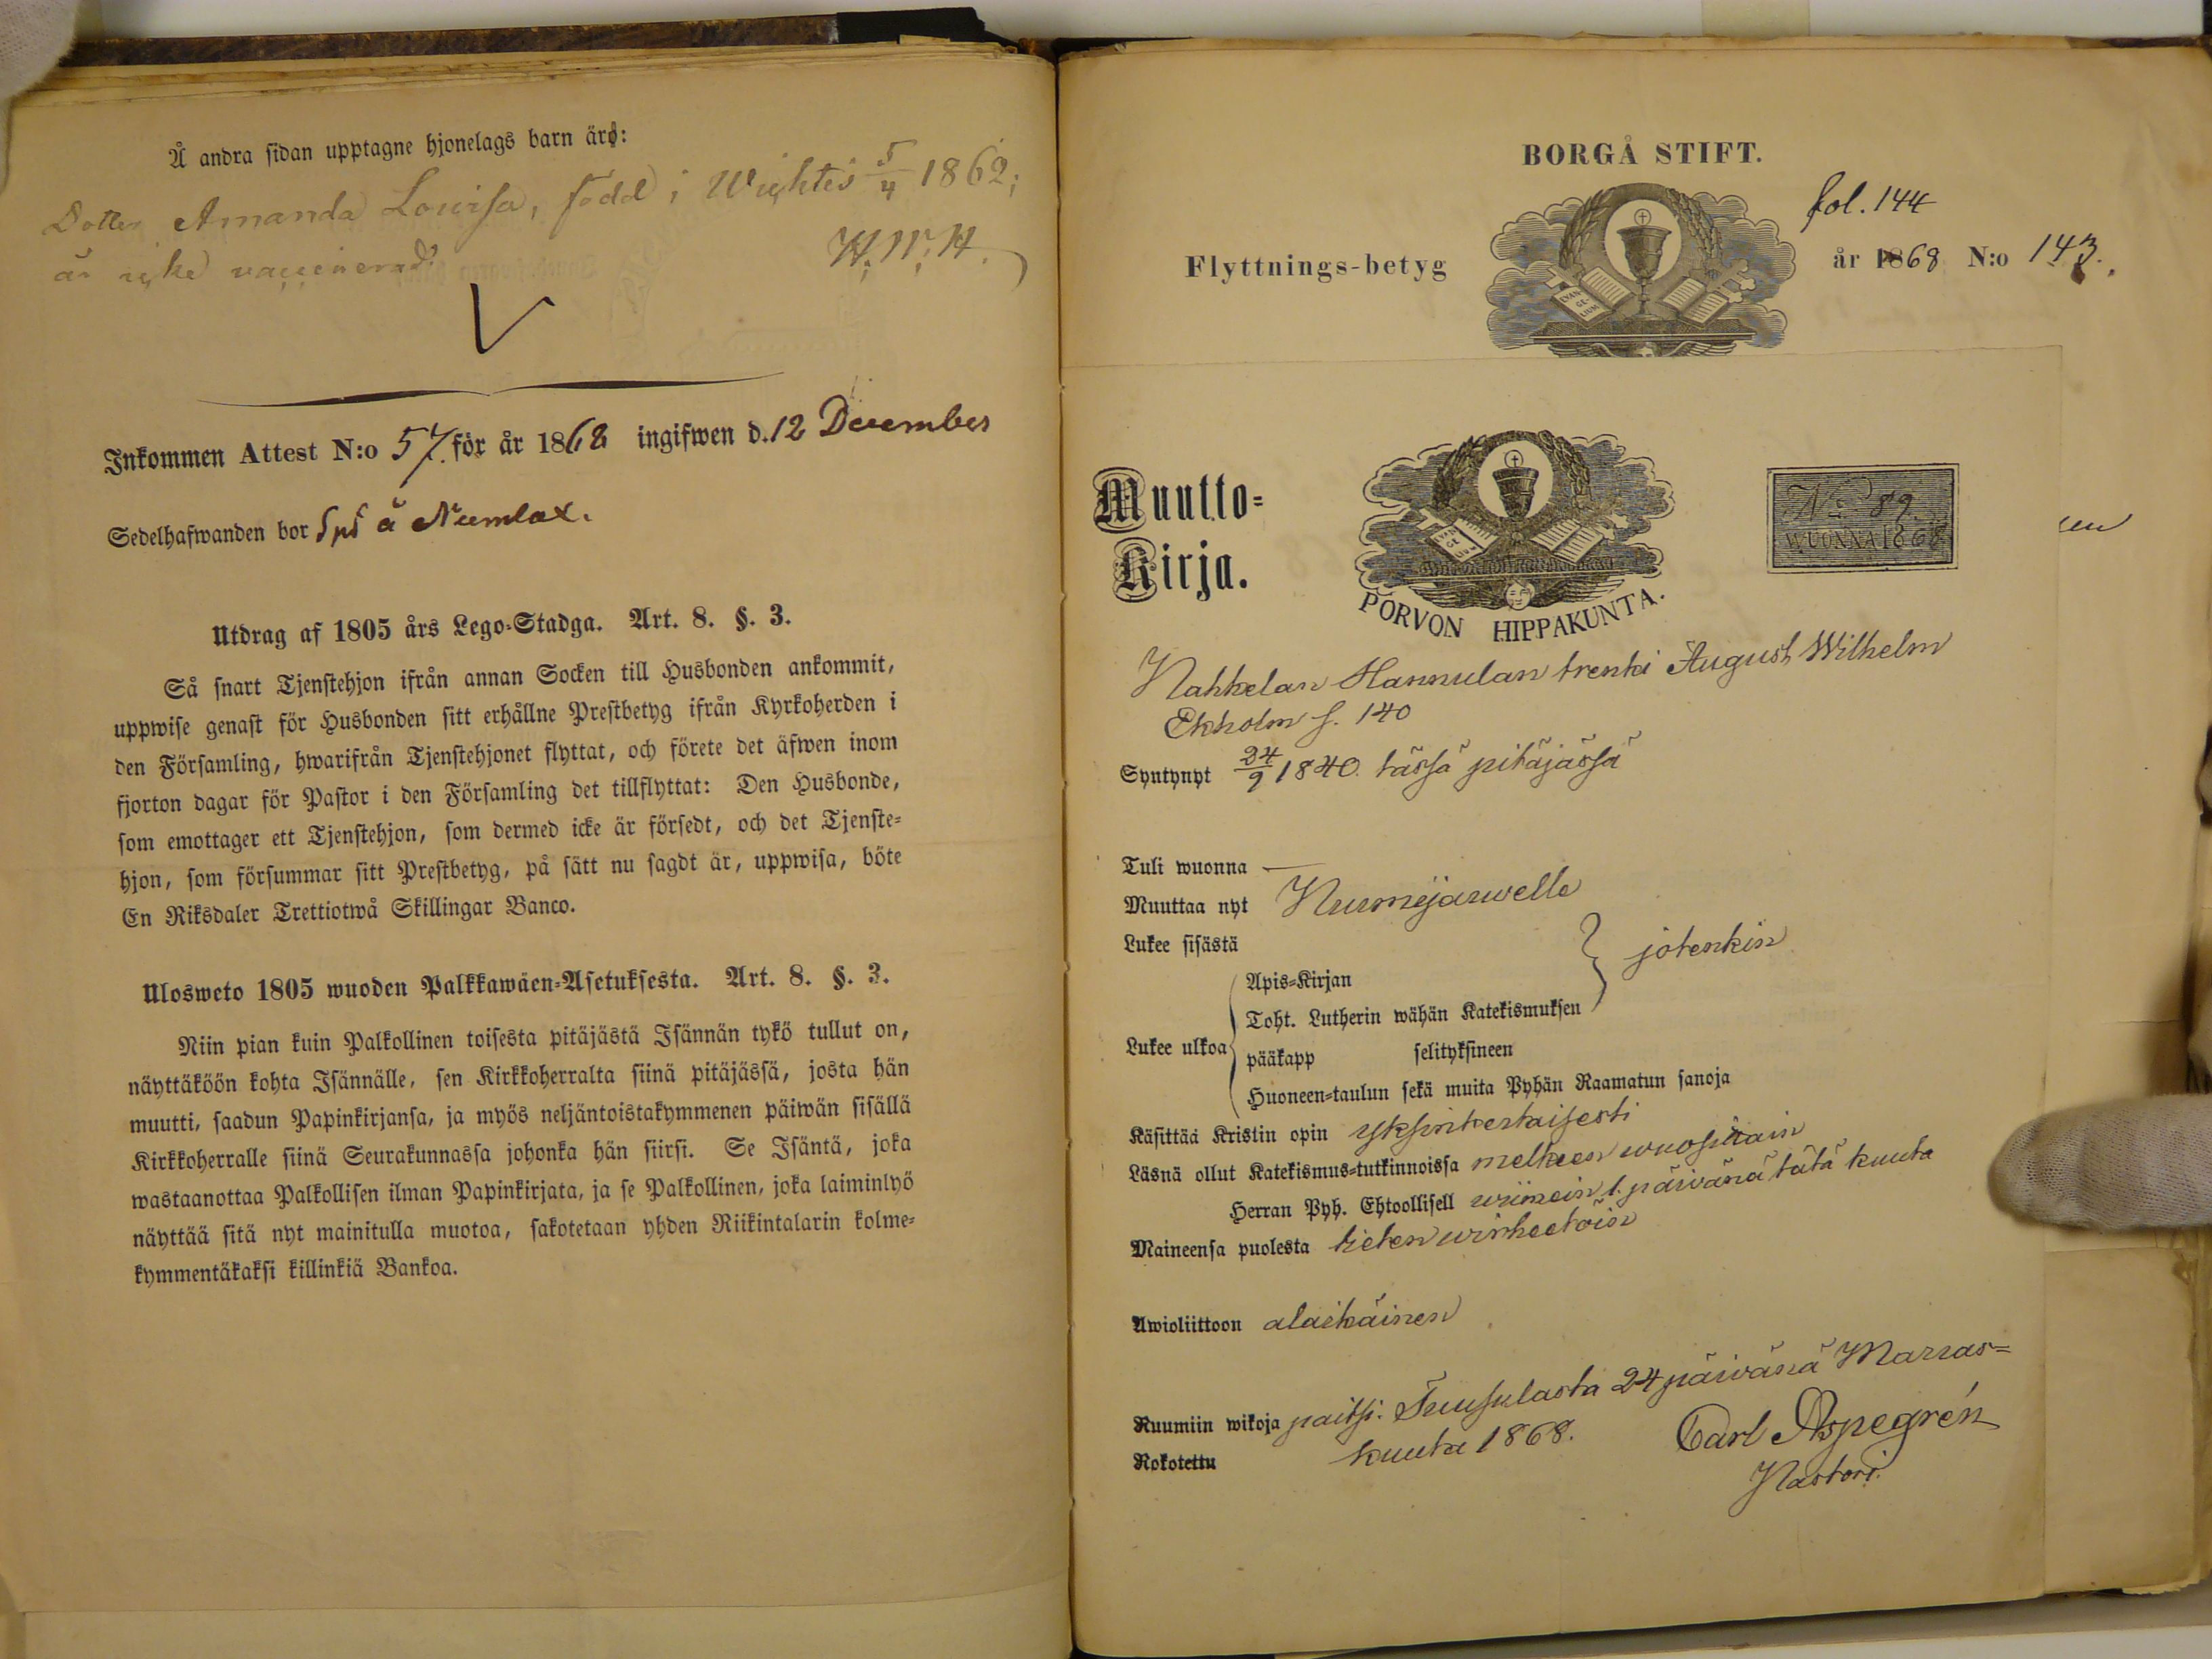 Å andra sidan upptagne hjonelags barn äro:
Dotter Amanda Lovisa, född i Wichtis 5/4 1862;
är icke vaccinerad.
Inkommen Attest N:o 57. för år 1868 ingifwen d. 12 December
Sedelhafwanden bor Sps å Numlax.
Utdrag af 1805 års Lego-Stadga. Art. 8. §. 3.
Så snart Tjenstehjon ifrån annan Socken till Husbonden ankommit,
uppwise genast för Husbonden sitt erhållne Prestbetyg ifrån Kyrkoherden i
den Församling, hwarifrån Tjenstehjonet flyttat, och förete det äfwen inom
fjorton dagar för Pastor i den Församling det tillflyttat: Den Husbonde,
som emottager ett Tjenstehjon, som dermed icke är försedt, och det Tjenste-
hjon, som försummar sitt Prestbetyg, på sätt nu sagdt är, uppwisa, böte
En Riksdaler Trettiotwå Skillingar Banco.
Ulosweto 1805 wuoden Palkkawäen-Asetuksesta. Art. 8. §. 3.
Niin pian kuin Palkollinen toisesta pitäjästä Isännän tykö tullut on,
näyttäköön kohta Isännälle, sen Kirkkoherralta siinä pitäjässä, josta hän
muutti, saadun Papinkirjansa, ja myös neljäntoistakymmenen päiwän sisällä
Kirkkoherralle siinä Seurakunnassa johonka hän siirsi. Se Isäntä, joka
wastaanottaa Palkollisen ilman Papinkirjata, ja se Palkollinen, joka laiminlyö
näyttää sitä nyt mainitulla muotoa, sakotetaan yhden Riikintalarin kolme-
kymmentäkaksi killinkiä Bankoa.
BORGÅ STIFT.
fol. 144
Flyttnings-betyg år 1868 N:o 143.
EVAN-
GE-
LIUM
Muutto-
Kirja.
EVAN
GE
LIUM
PORVON HIPPAKUNTA.
No 89
WUONNA 1868
Nahkelan Hannulan trenki August Wilhelm
Ekholm s. 140
Syntynyt 24/9 1840. tässä pitäjässä
Tuli wuonna —
Muuttaa nyt Nurmejärwelle
Lukee sisästä
jotenkin
Apis-Kirjan
Toht. Lutherin wähän Katekismuksen
Lukee ulkoa
pääkapp selityksineen
Huoneen-taulun sekä muita Pyhän Raamatun sanoja
Käsittää Kristin opin yksinkertaisesti
Läsnä ollut Katekismus-tutkinnoissa melkeen wuosittain
Herran Pyh. Ehtoollisell wiimein 1. päivänä tätä kuuta
Maineensa puolesta tieten wirheetöin
Awioliittoon alaikäinen
Ruumiin wikoja paitsi. Tuusulasta 24 päivänä Marras=
kuuta 1868.
Rokotettu
Carl Aspegrén
Pastori.